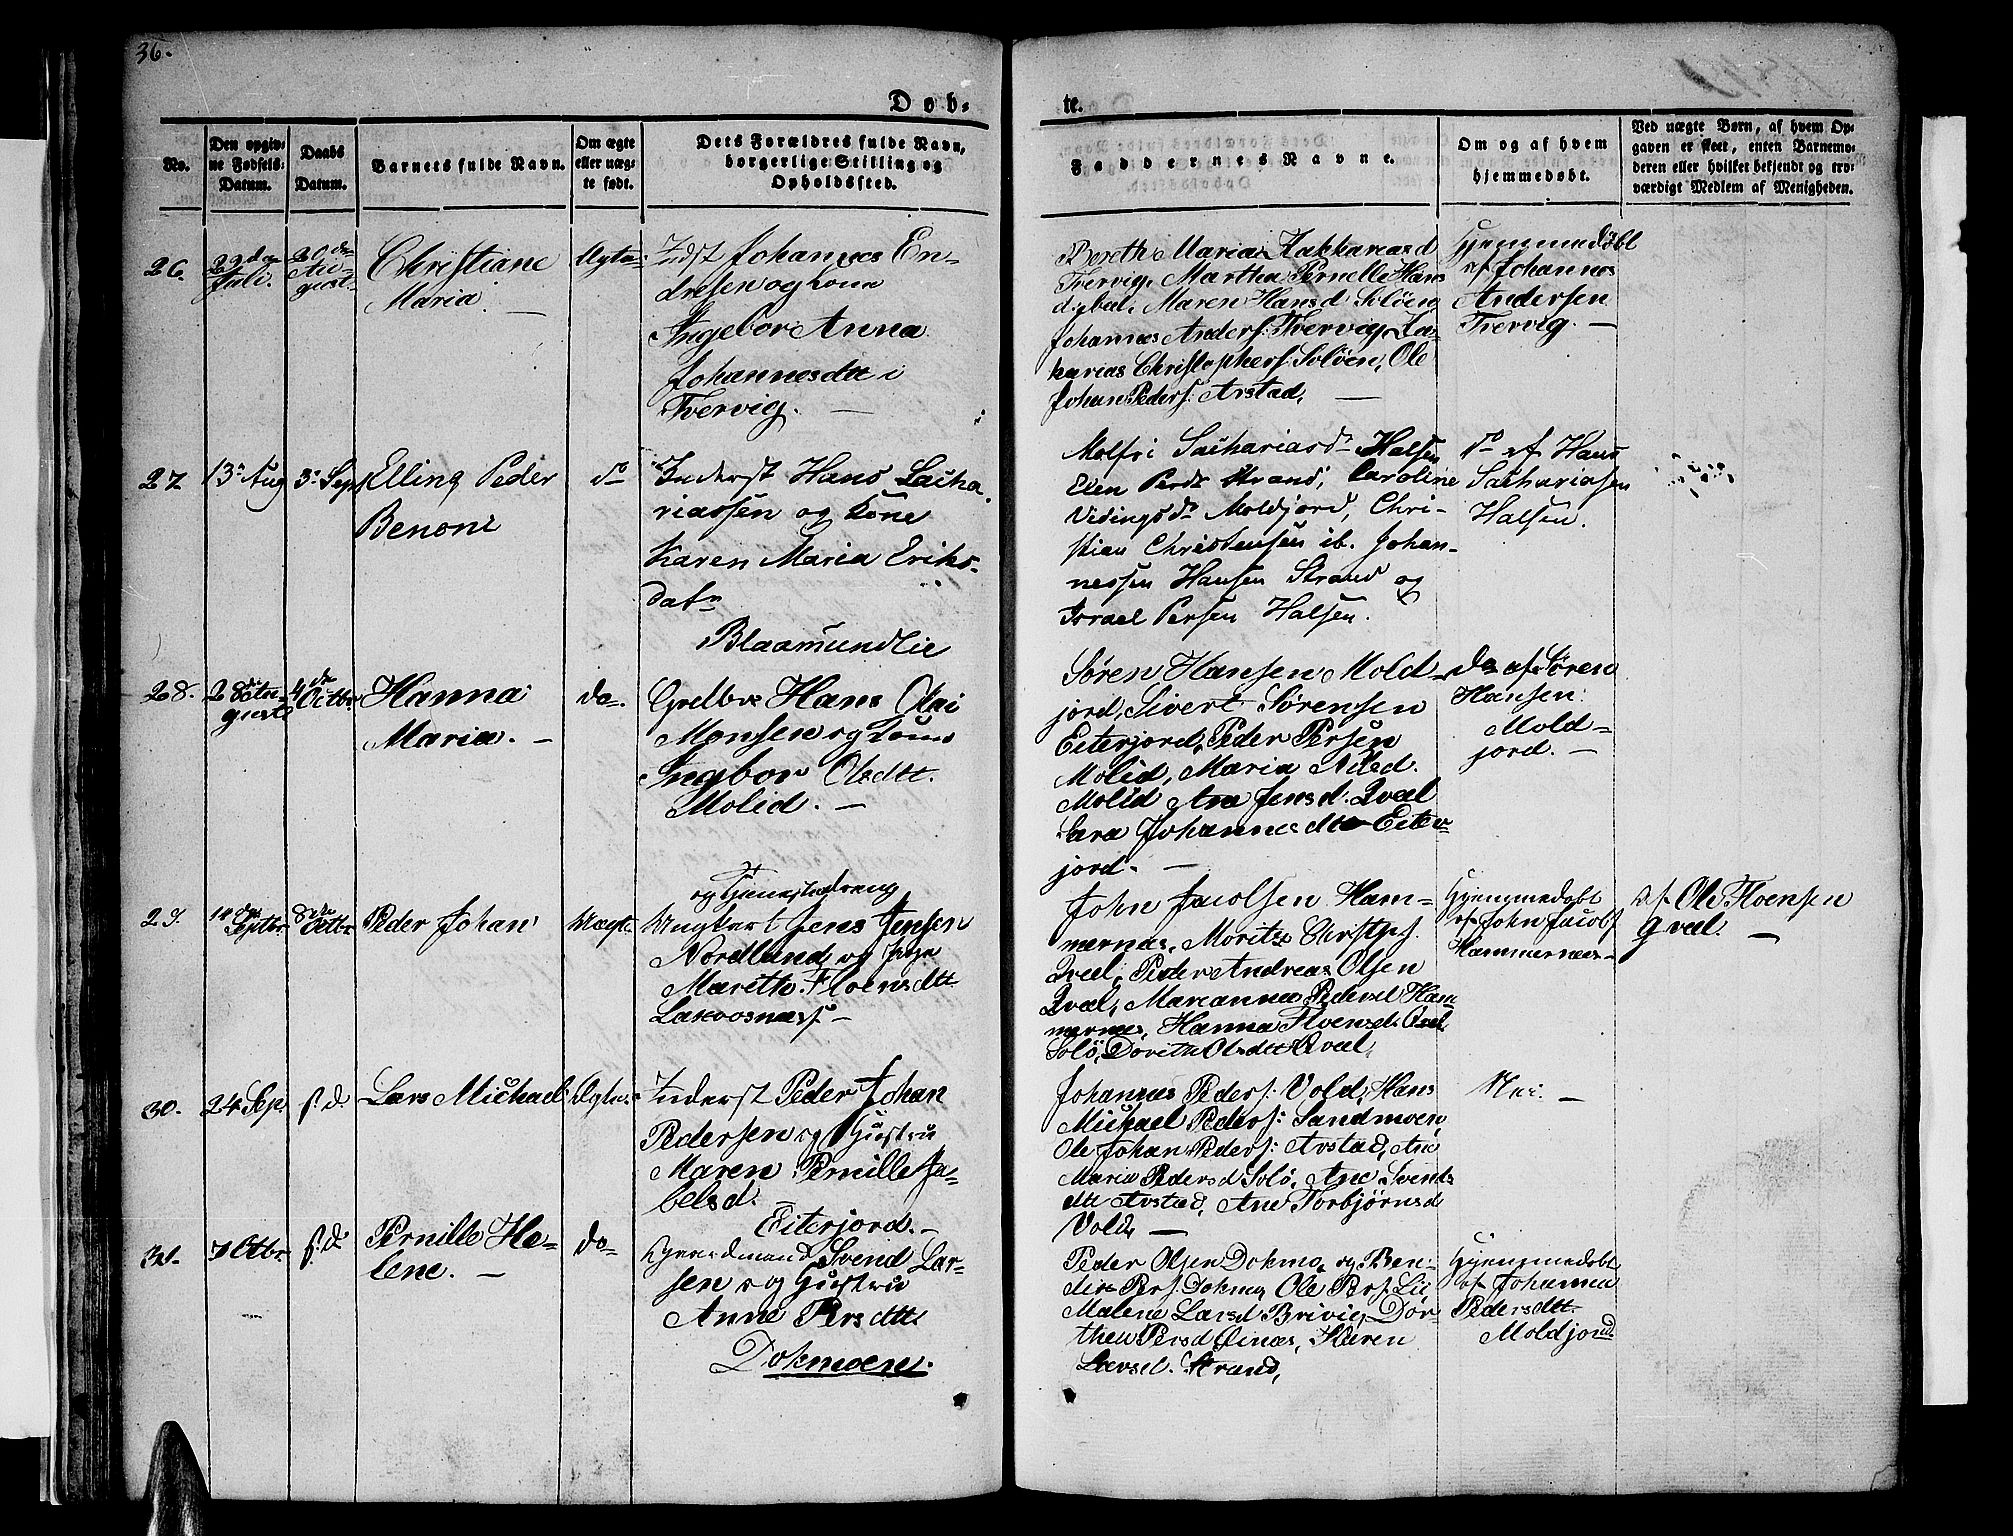 36.
Døb-
te.
No.
Den opgiv-
ne Fødsels-
Datum.
Daabs
Datum.
Barnets fulde Navn.
Om ægte
eller uæg-
te født.
Dets Forældres fulde Navn,
borgerlige Stilling og
Opholdssted.
Faddernes Navne.
Om og af hvem
hjemmedøbt.
Ved uægte Børn, af hvem Op-
gaven er skeet, enten Barnemo-
deren eller hvilket bekjendt og tro-
værdigt Medlem af Menigheden.
26.
22de
Juli.
20de
Au-
gust
Christiane
Maria. —
Ægte
Indst Johannes En-
dresen og Kone
Ingebor Anna
Johannesdtt i
Tvervig. —
Bereth Maria Zakkariasd
Tvervig, Martha Pernelle Hans
d. ibid. Maren Hansd Soløen
Johannes Anders: Tvervig, Za-
karias Christophers: Soløen, Ole
Johan Peders: Arstad, —
Hjemmedøbt
af Johannes
Andersen
Tvervig. —
27
13: Aug
3: Sep
Elling Peder
Benoni
do
Inderst Hans Sacha-
riassen og Kone
Karen Maria Eriks-
datr
Blaamundlie
Molfri Sachariasdr Halsen
Elen Persdr Strand, Caroline
Vidingsdr Moldjord, Chri-
stian Christensen ib. Johan-
nessen Hansen Strand og
Israel Persen Halsen.
do af Hans
Sachariasen
Halsen.
28.
28 Au-
gusti
4de
Octbr
Hanna
Maria. —
do.
Hans Olai
Monsen og Kone
Ingbor Olsdtt.
Molid. —
Søren Hansen Mold-
jord, Sivert Sørensen
Eiterjord, Peder Persen
Molid, Maria Nilsd.
Molid Ane Jensd. Qval
Sara Johannesdtt Eiter-
jord. —
do af Søren
Hansen
Mold-
jord. —
29.
Septbr
8de
Octbr
Peder Johan
Uægt.
og Tjenestedreng
Ungkarl Jens Jensen
Nordlund og Pige
Mareth Floensdtt
—
John Jacobsen Ham-
mernes, Moritz
Qval, Peder Andreas Olsen
Qval, Marianna Pedersd Ham
mernes, Hanna Floensd. Qval
Solø, Dorethe Olsdtt Qval,
Hjemmedøbt
af John Jacobs
Hammernees—
af Ole Floensen
Qval. —
30.
24 Sep.
s. d.
Lars Michael
Ægte.
Inderst Peder Johan
Pedersen og Hustru
Maren Pernille Ja-
belsd.
Eiterjord. —
Johannes Peders: Vold, Hans
Michael Peders: Sandmoen,
Ole Johan Peders: Arstad, Ane
Maria Pedersd Solø, Ane Svends
dtt Arstad, Ane Torbjørnsd
Vold, —
Nei. —
31.
7 Octbr.
s. d.
Pernille He-
lene. —
do
Gaardmand Svend Lar-
sen og Hustru
Anne Persdtt.
Dokmoen.
Peder Olsen Dokmo, og Ben-
Pers. Dokmo, Ole Pers. Lie,
Malene Larsd Brivig, Dor-
thea Persd Øinæs, Karen
Larsd. Strand,
Hjemmedøbt
af Johanna
Pedersdtt.
Moldjord.